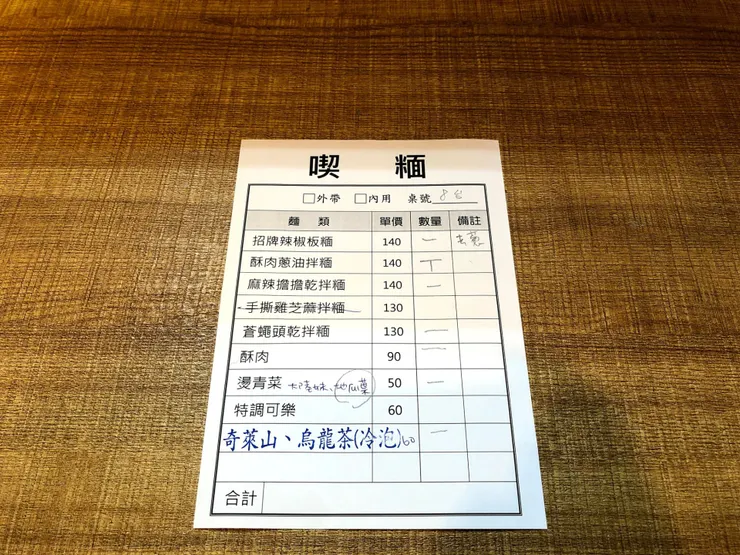 喫 糆
□外帶 □內用 桌號 8台
麵 類 單價 數量 備註
招牌辣椒板糆 140 一 去蔥
酥肉蔥油拌糆 140 丅
麻辣擔擔乾拌糆 140 一
手撕雞芝蔴拌糆 130
蒼蠅頭乾拌糆 130 一
酥肉 90 一
燙青菜 大陸妹、地瓜葉 50 一
特調可樂 60
奇萊山、烏龍茶(冷泡)60 一
合計